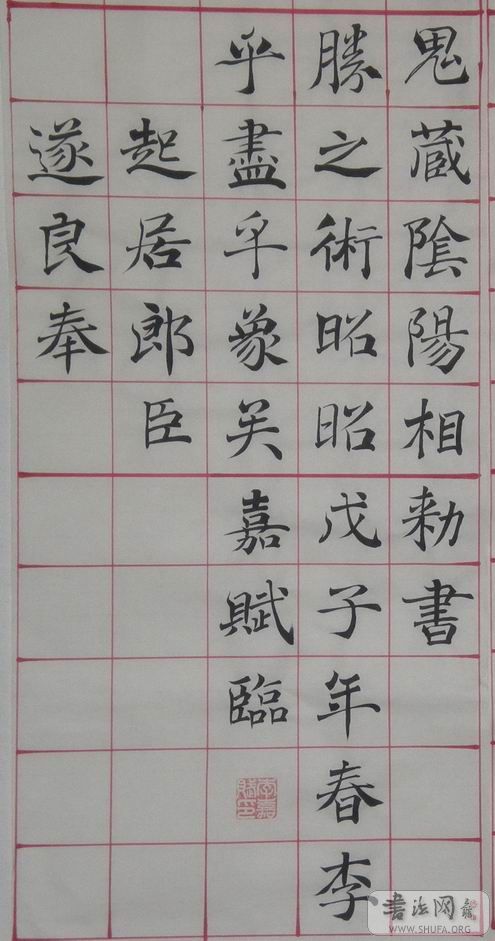 鬼藏陰陽相勑書
勝之術昭昭戊子年春李
乎盡乎象矣嘉賦臨
起居郎臣
遂良奉
李嘉賦印
書法网
WWW.SHUFA.ORG